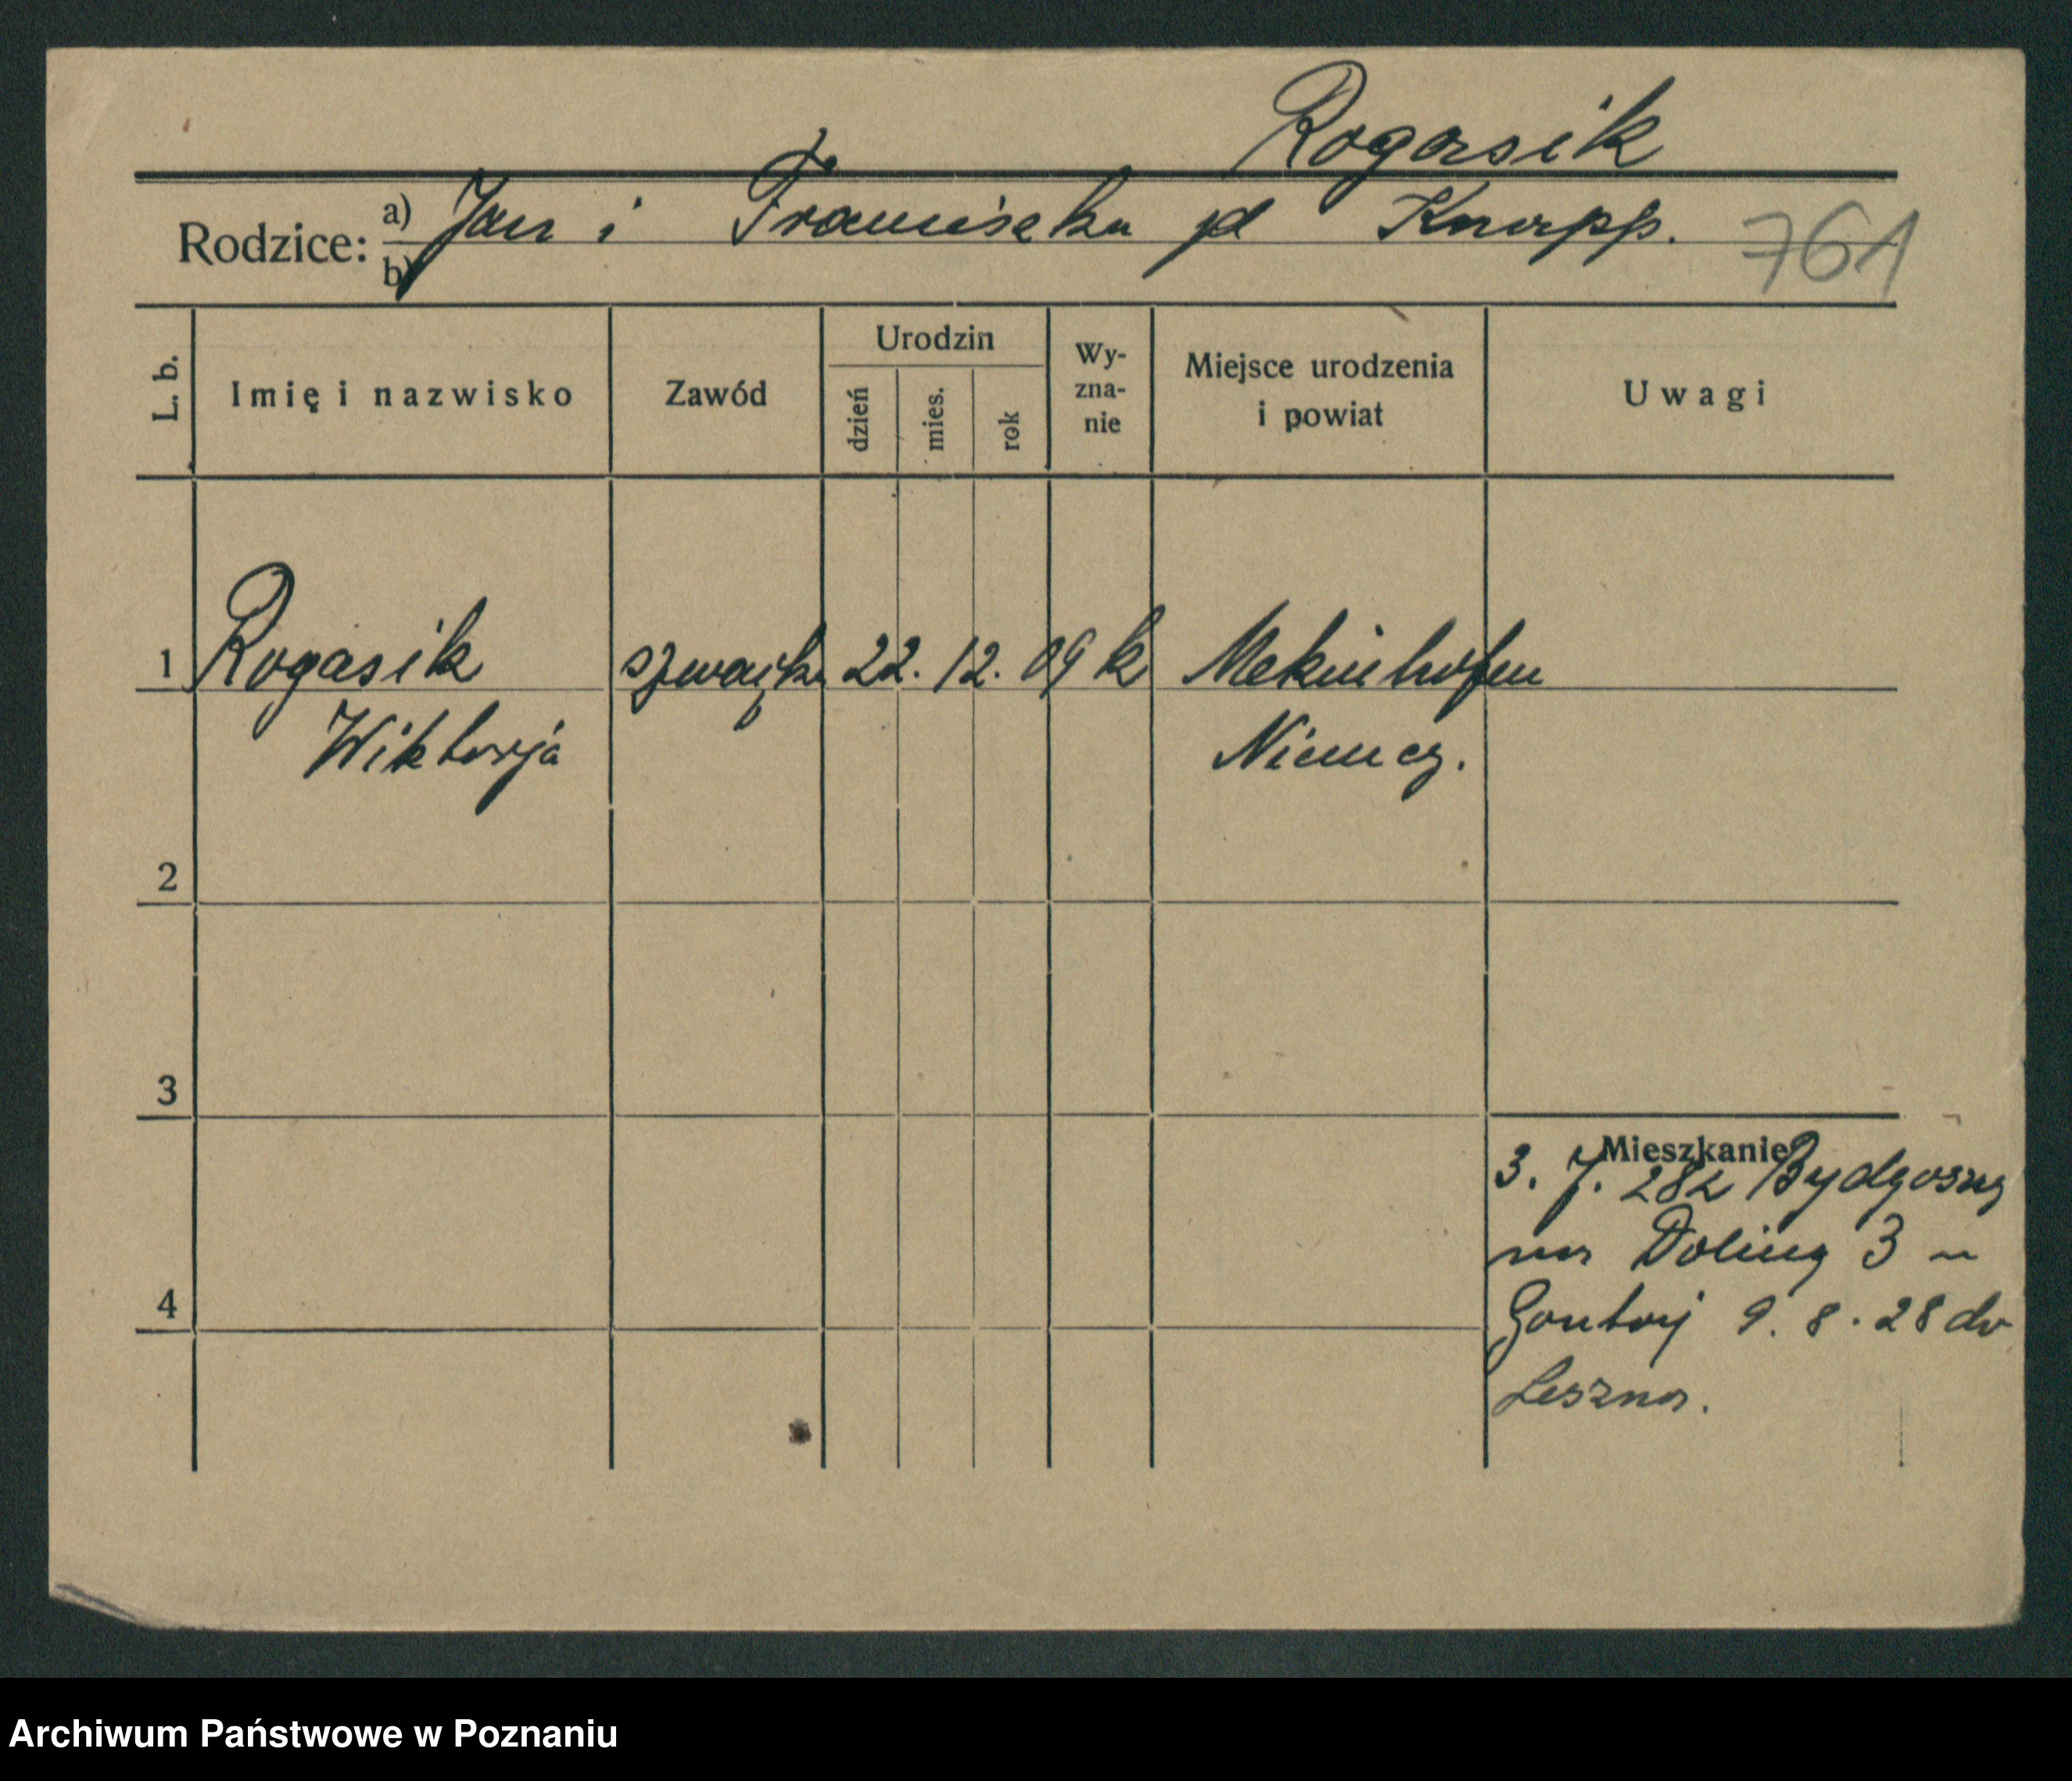 Rogasik
Rodzice: a) Jan i Franciszka zd Knapp.
b)
761
L. b. Imię i nazwisko Zawód Urodzin dzień mies. rok Wy-zna-nie Miejsce urodzenia i powiat Uwagi
1 Rogasik szwaczk. 22. 12. 09 k
Wiktorja Niemcy.
2
3
Mieszkanie
3. 7. 28 z Bydgoszcz
na Doliny 3 u
9. 8. 28 do
4
Leszna.
Archiwum Państwowe w Poznaniu